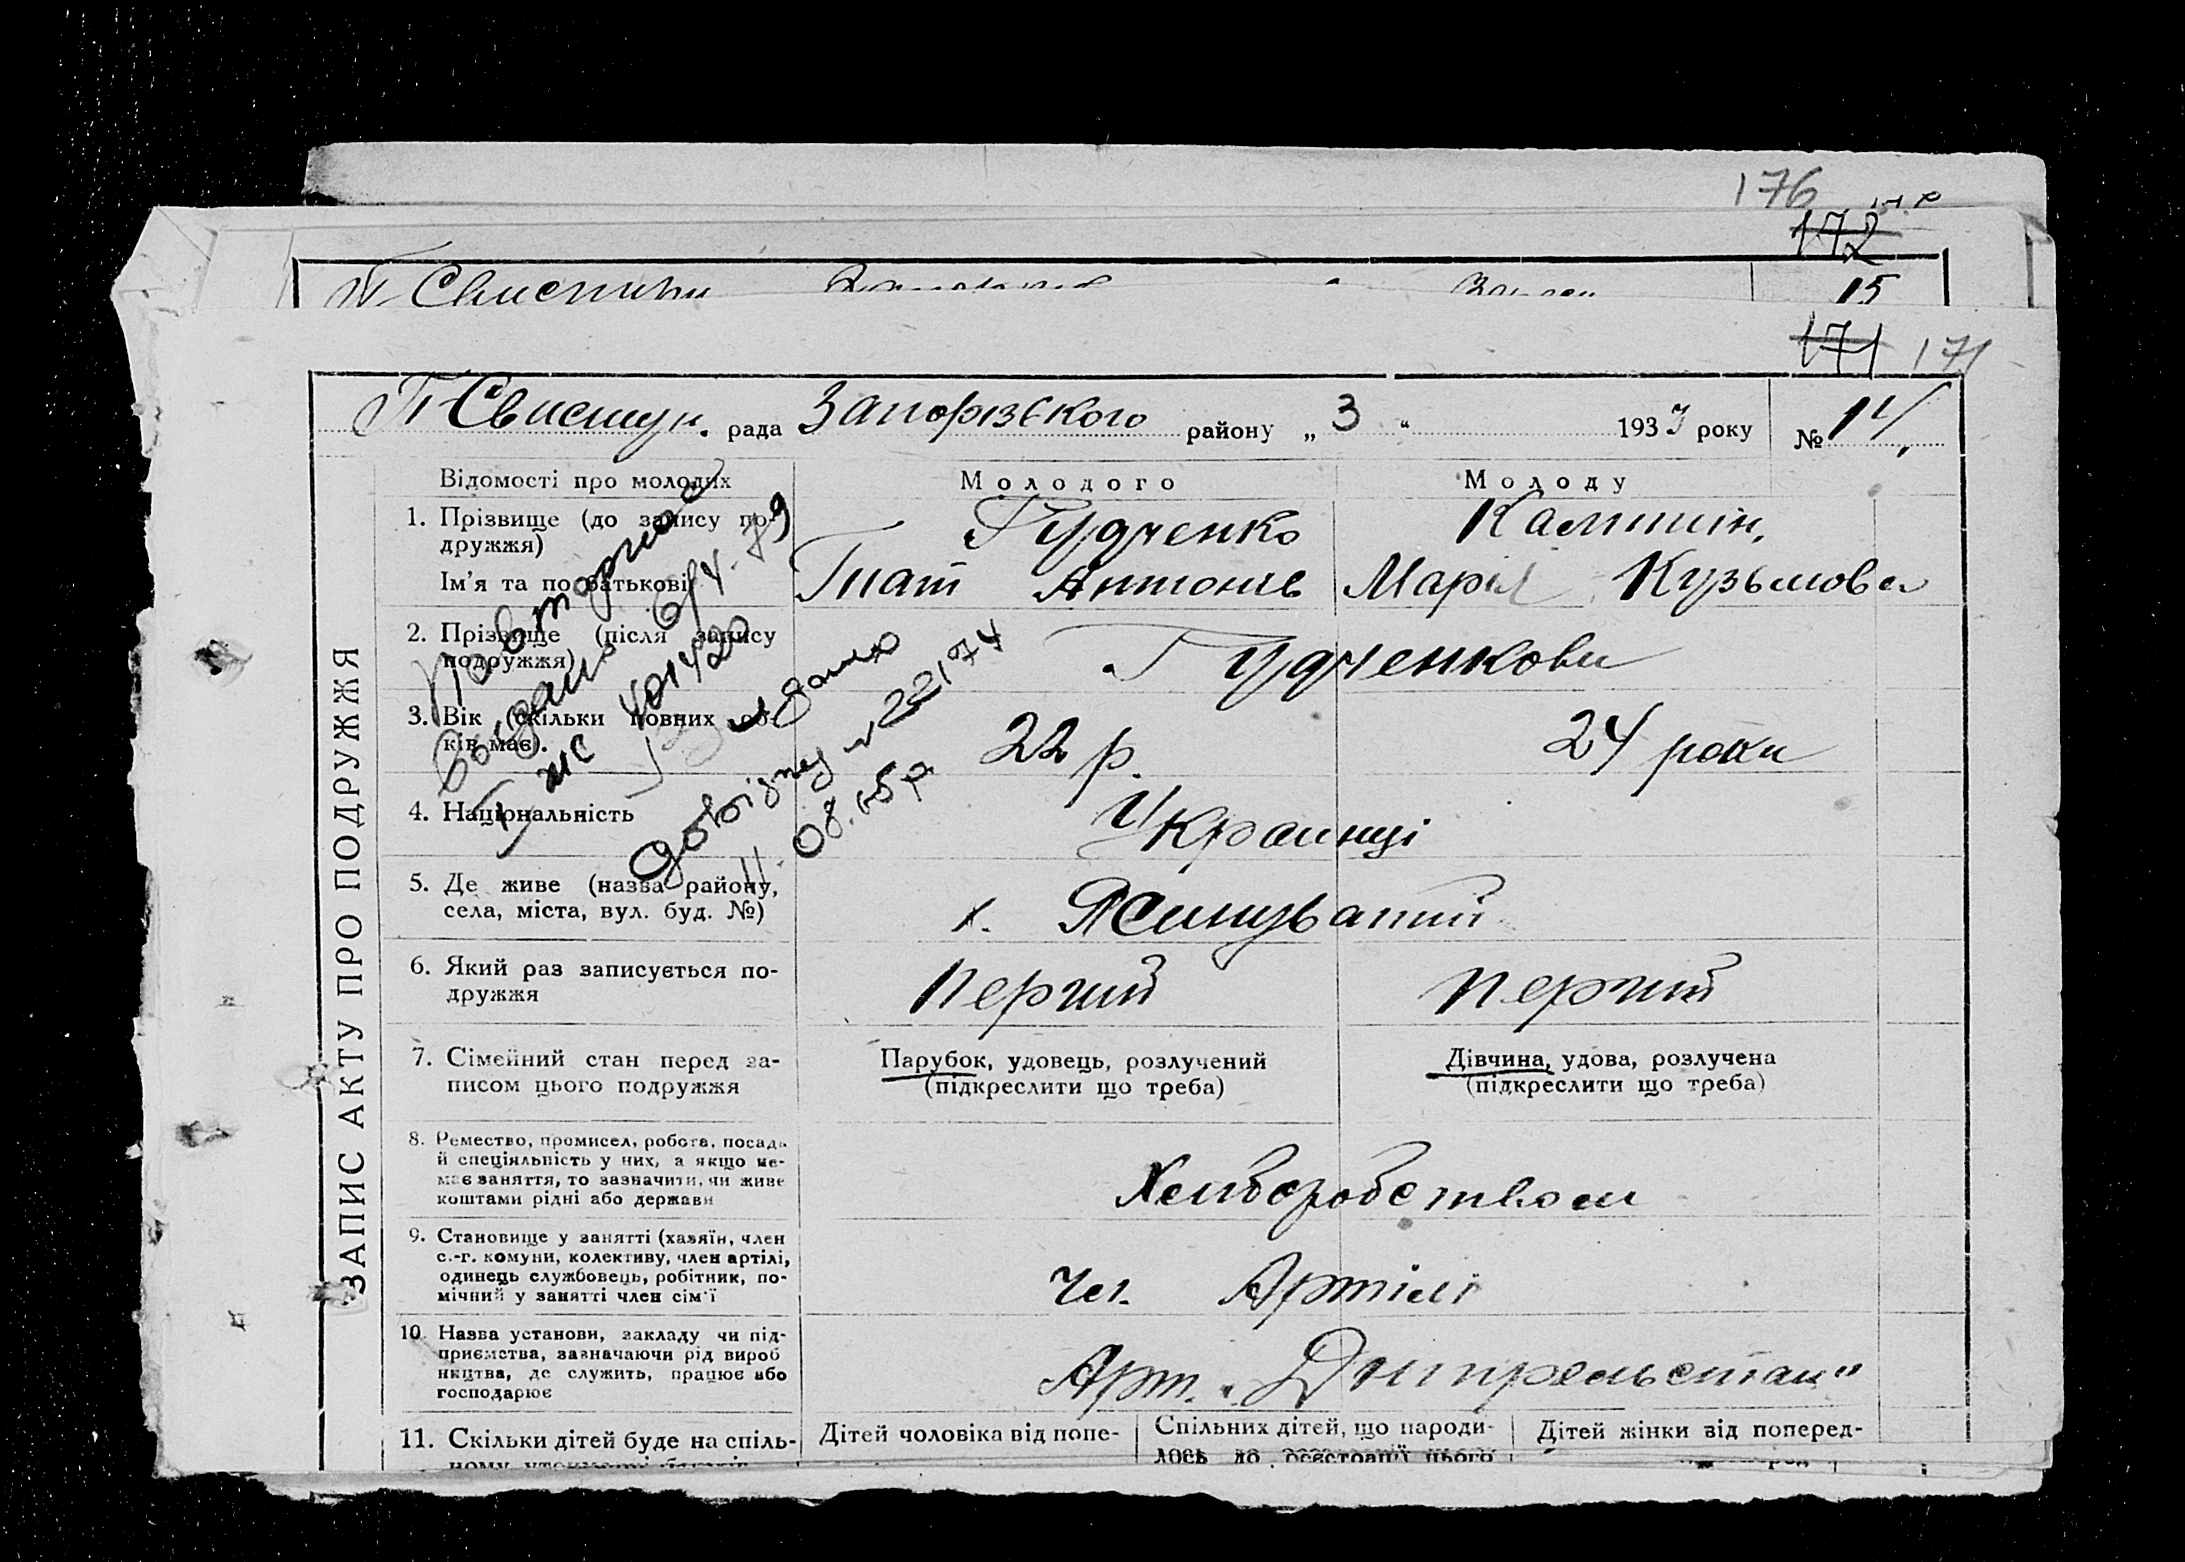 176
172
15
171 171
Т Свистун. рада Запорізького району „ 3 “ 1933 року № 14
Відомості про молодих Молодого Молоду
1. Прізвище (до запису по- Гудченко
дружжя)
Ім'я та по батькові Гнат Антонів Марія Кузьмова
2. Прізвище (після запису Гудченкови
подружжя)
3. Вік (скільки повних ро- 22 р. 24 роки
ків має).
4. Національність Украинці
5. Де живе (назва району,
села, міста, вул. буд. №) х. Ясинуватий
6. Який раз записується по- перший перший
дружжя
7. Сімейний стан перед за- Парубок, удовець, розлучений Дівчина, удова, розлучена
писом цього подружжя (підкреслити що треба) (підкреслити що треба)
8. Ремество, промисел, робота, посада
й спеціяльність у них, а якщо не-
має заняття, то зазначити, чи живе
коштами рідні або держави
Хлиборобством
9. Становище у занятті (хазяїн, член
с.-г. комуни, колективу, член артілі,
одинець службовець, робітник, по-
мічний у занятті член сім'ї
Чл. Артілі
10. Назва установи, закладу чи під-
приємства, зазначаючи рід вироб
ництва, де служить, працює або
господарює
Арт. „Днипрельстан"
11. Скільки дітей буде на спіль- Дітей чоловіка від попе- Спільних дітей, що народи- Дітей жінки від поперед-
лось до реєстрації цього
ЗАПИС АКТУ ПРО ПОДРУЖЖЯ
Повторное
выдано 6/4-79
401420
видано
довідку № 22174
08.